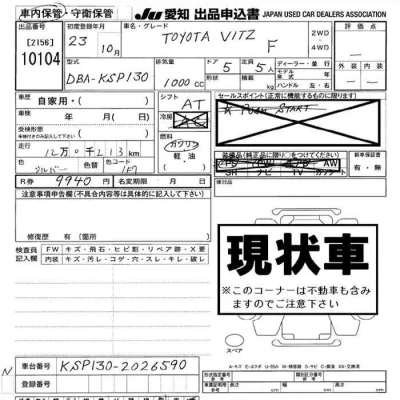 車内保管・守衛保管
JU 愛知 出品申込書 JAPAN USED CAR DEALERS ASSOCIATION
出品番号
[2156]
10104
初度登録年月
23年
10月
車名・グレード
TOYOTA VITZ F
2WD
4WD
評価点
外装
内装
型式
DBA-KSP130
排気量
1000cc
ドア
5
定員
5人
ディーラー・並行
モデル年式
ハンドル 左・右
車歴
自家用・( )
シフト
AT
セールスポイント(正常に機能するものに限ります)
PUSH START
車検
年 月 日
冷房
受検形態
燃料
ガソリン
軽油
走行
12万0千213km
色
シルバー
色替
色コード
1F7
装備品(純正品に限り○をつけてください)
PS PW AW
SR ナビ TV カワ
新車保証書
有・無
R券
9940円
名変期限
月 日
注意事項申告欄(不具合内容等は具体的に記入して下さい)
修復歴 有(箇所
検査員記入欄
FW キズ・飛石・ヒビ割・リペア跡・X要
内装 キズ・汚レ・コゲ・穴・スレ・キレ・破レ
現状車
※このコーナーは不動車も含みますのでご注意下さい
スペア
車台番号
KSP130-2026590